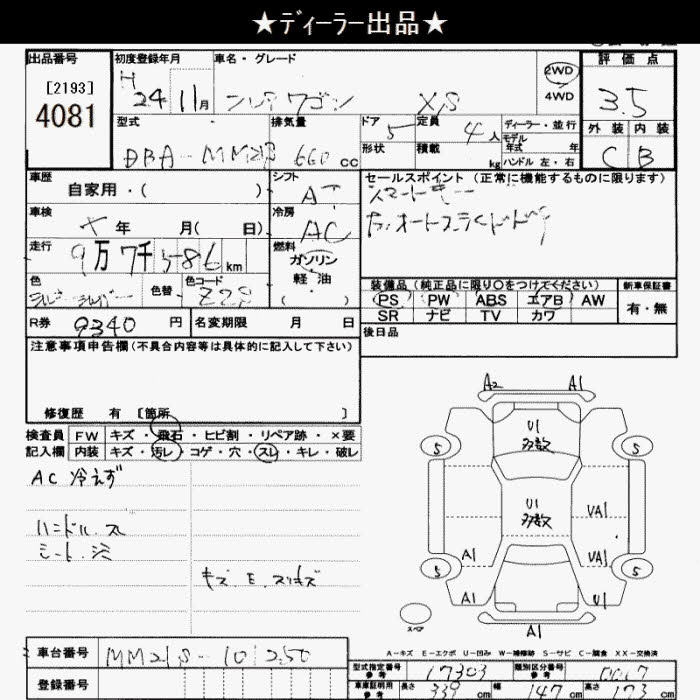 ★ディーラー出品★
出品番号 初度登録年月 車名・グレード 評価点
[2193] H 24年 11月 フレアワゴン XS 2WD 4WD 3.5
4081
型式 排気量 ドア 5 定員 4人 ディーラー・並行 外装 内装
DBA-MM21S 660cc 形状 積載 kg モデル年式 年 ハンドル 左・右 C B
車歴 シフト セールスポイント (正常に機能するものに限ります)
自家用・( ) AT スマートキー
車検 冷房 オートスライドドア
年 月( 日) AC
走行 燃料
9万7千586km ガソリン
色 色替 色コード 軽油 装備品 (純正品に限り○をつけてください) 新車保証書
シルバー Z2S ( ) PS PW ABS エアB AW 有・無
SR ナビ TV カワ
R券 9340円 名変期限 月 日 後日品
注意事項申告欄 (不具合内容等は具体的に記入して下さい)
修復歴 有 [箇所 ]
検査員 FW キズ・飛石・ヒビ割・リペア跡・×要
記入欄 内装 キズ・汚レ・コゲ・穴・スレ・キレ・破レ
AC 冷えず
ハンドル.ス
シート.シミ
キズ.E.スリキズ
A2 A1
U1
多数
5 5
U1
多数
UA1
A1 UA1
5 5
A1 U1
スペア
A1
A-キズ E-エクボ U-凹み W-補修跡 S-サビ C-腐食 XX-交換済
車台番号 MM21S-101250
登録番号
型式指定番号 参考 17303 類別区分番号 参考
車庫証明用 参考 長さ 339cm 幅 147cm 高さ cm